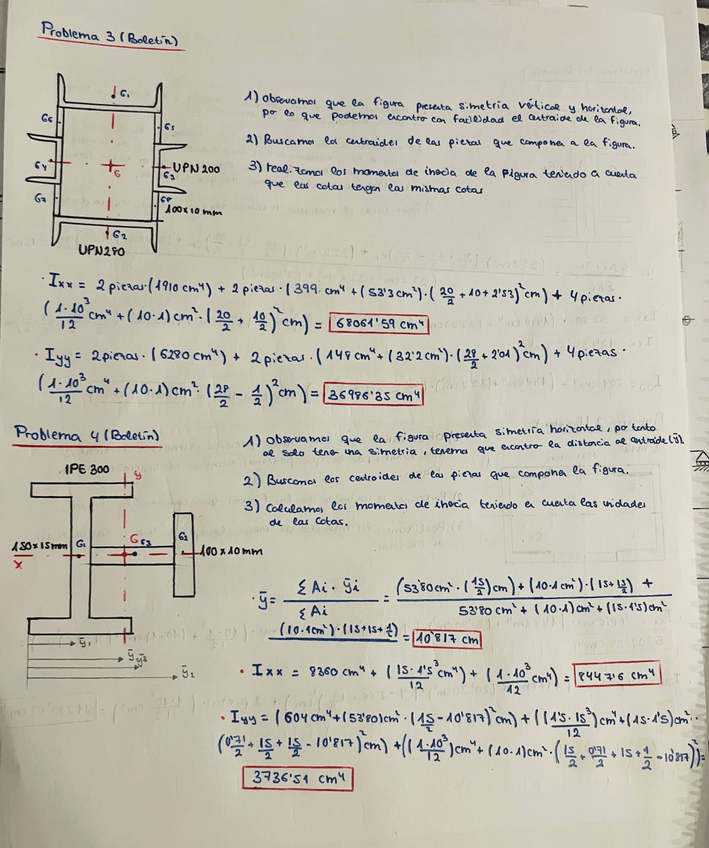 Problema 3 (Boletín)
G1
G6
G5
G4
G
G3
UPN 200
G7
G8
100x10 mm
G2
UPN280
1) Observamos que la figura presenta simetría vértical y horizontal,
por lo que podemos encontra con facilidad el centroide de la figura.
2) Buscamos los centroides de las piezas que compone a la figura.
3) realizamos los momentos de inercia de la figura teniendo en cuenta
que las cotas tengan las mismas cotas
· Ixx = 2 piezas·(1910 cm⁴) + 2 piezas·(399 cm⁴ + (53'3 cm²)·(20/2 + 10 + 2'53)² cm) + 4 piezas·
(1·10³/12 cm⁴ + (10·1) cm²·(20/2 + 10/2)² cm) = 68061'59 cm⁴
· Iyy = 2 piezas·(6280 cm⁴) + 2 piezas·(148 cm⁴ + (32'2 cm²)·(28/2 + 2'01)² cm) + 4 piezas·
(1·10³/12 cm⁴ + (10·1) cm²·(28/2 - 1/2)² cm) = 36986'35 cm⁴
Problema 4 (Boletín)
1) Observamos que la figura presenta simetría horizontal, por tanto
al solo tener una simetria, tenemos que encontra la distancia al centroide (ȳ).
2) Buscamos los centroides de las piezas que compone la figura.
3) Calculamos los momentos de inercia teniendo en cuenta las unidades
de las cotas.
IPE 300
y
150x15mm
x
G1
G
G3
G2
100x10mm
ȳ1
ȳ
ȳ3
ȳ2
· ȳ = ΣAi·ȳi / ΣAi = (53'80 cm²·(15/2) cm) + (10·1 cm²)·(15+15/2) +
53'80 cm² + (10·1) cm² + (15·1'5) cm²
(10·1cm²)·(15+15+1/2) = 10'817 cm
· Ixx = 8360 cm⁴ + (15·1'5³/12 cm⁴) + (1·10³/12 cm⁴) = 8447'6 cm⁴
· Iyy = (604 cm⁴ + (53'80) cm²·(15/2 - 10'817)² cm) + ((1'5·15³/12) cm⁴ + (15·1'5) cm²·
(0'71/2 + 15/2 + 15/2 - 10'817)² cm) + ((1·10³/12) cm⁴ + (10·1) cm²·(15/2 + 0'71/2 + 15 + 1/2 - 10'817)²) =
3736'51 cm⁴